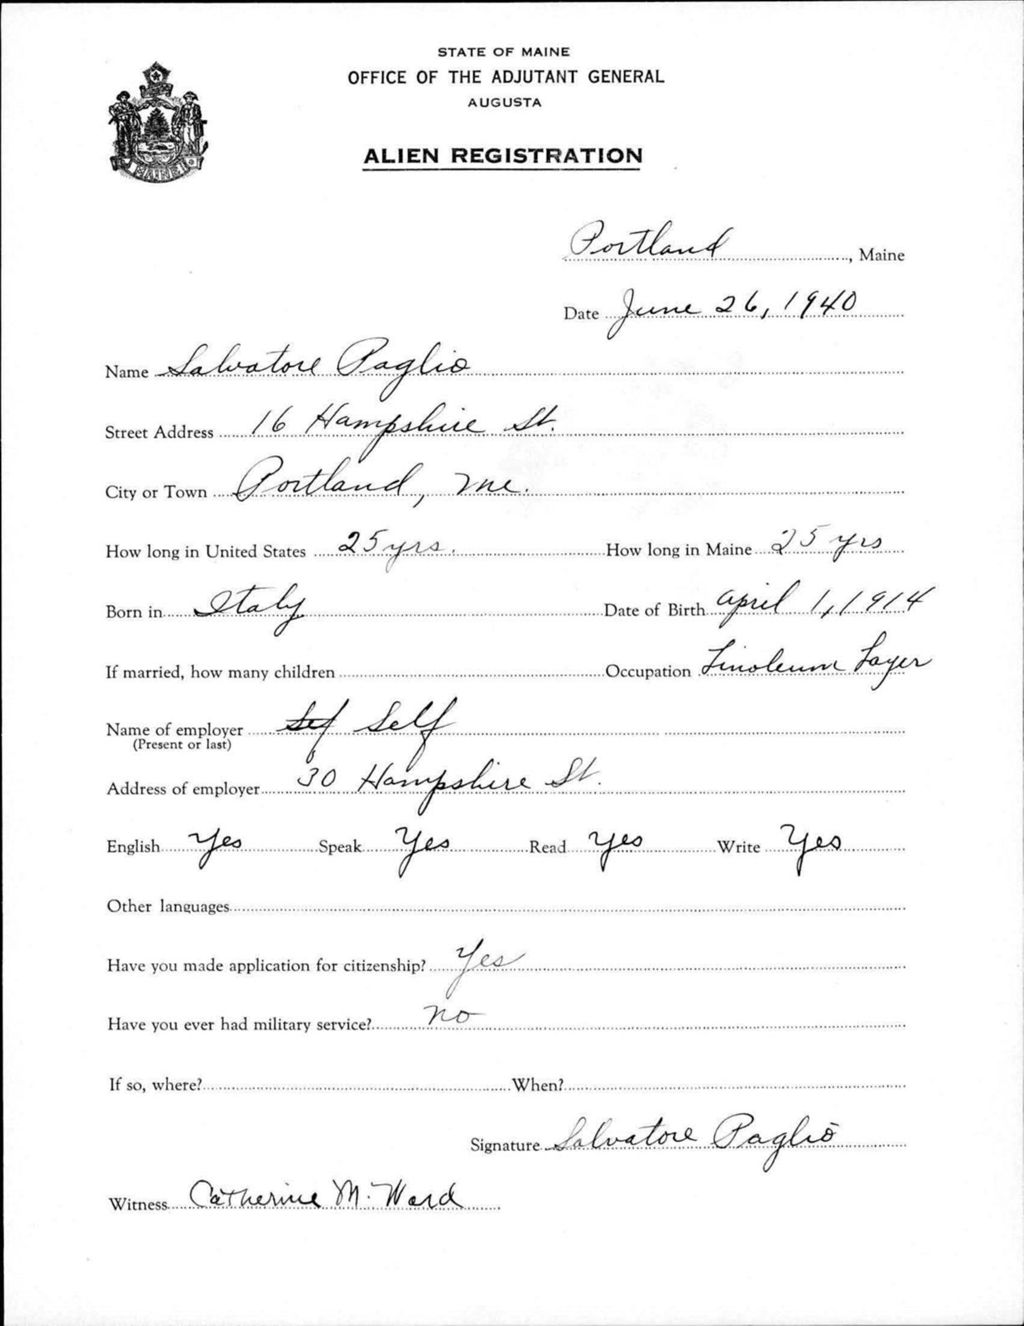 STATE OF MAINE
OFFICE OF THE ADJUTANT GENERAL
AUGUSTA
ALIEN REGISTRATION
MAINE
Portland, Maine
Date June 26, 1940
Name Salvatore Paglio
Street Address 16 Hampshire St.
City or Town Portland, Me.
How long in United States 25 yrs. How long in Maine 25 yrs
Born in Italy Date of Birth April 1, 1914
If married, how many children Occupation Linoleum Layer
Name of employer Sef Self
(Present or last)
Address of employer 30 Hampshire St.
English Yes Speak Yes Read Yes Write Yes
Other languages
Have you made application for citizenship? Yes
Have you ever had military service? no
If so, where? When?
Signature Salvatore Paglio
Witness Catherine M. Ward